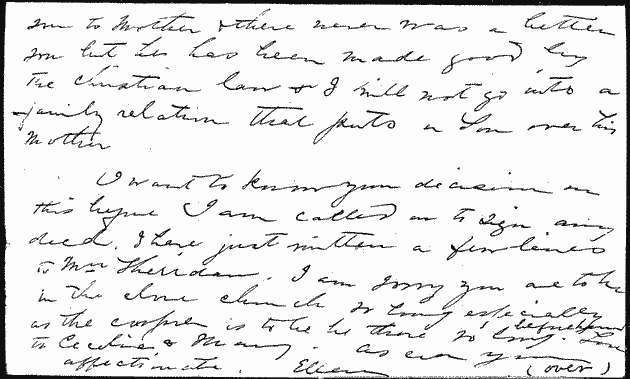 son to Mother & there never was a better
son but he has been made good by
the Christian law & I will not go into a
family relation that puts a Son over his
Mother
I want to know your decision on
this before I am called on to sign any
deed. I have just written a few lines
to Mrs Sheridan. I am sorry you are to be
in the church so long especially
as the corpse is to be there so long. Love
to Cecilia & Mary. As ever your
affectionate Ellen (over)